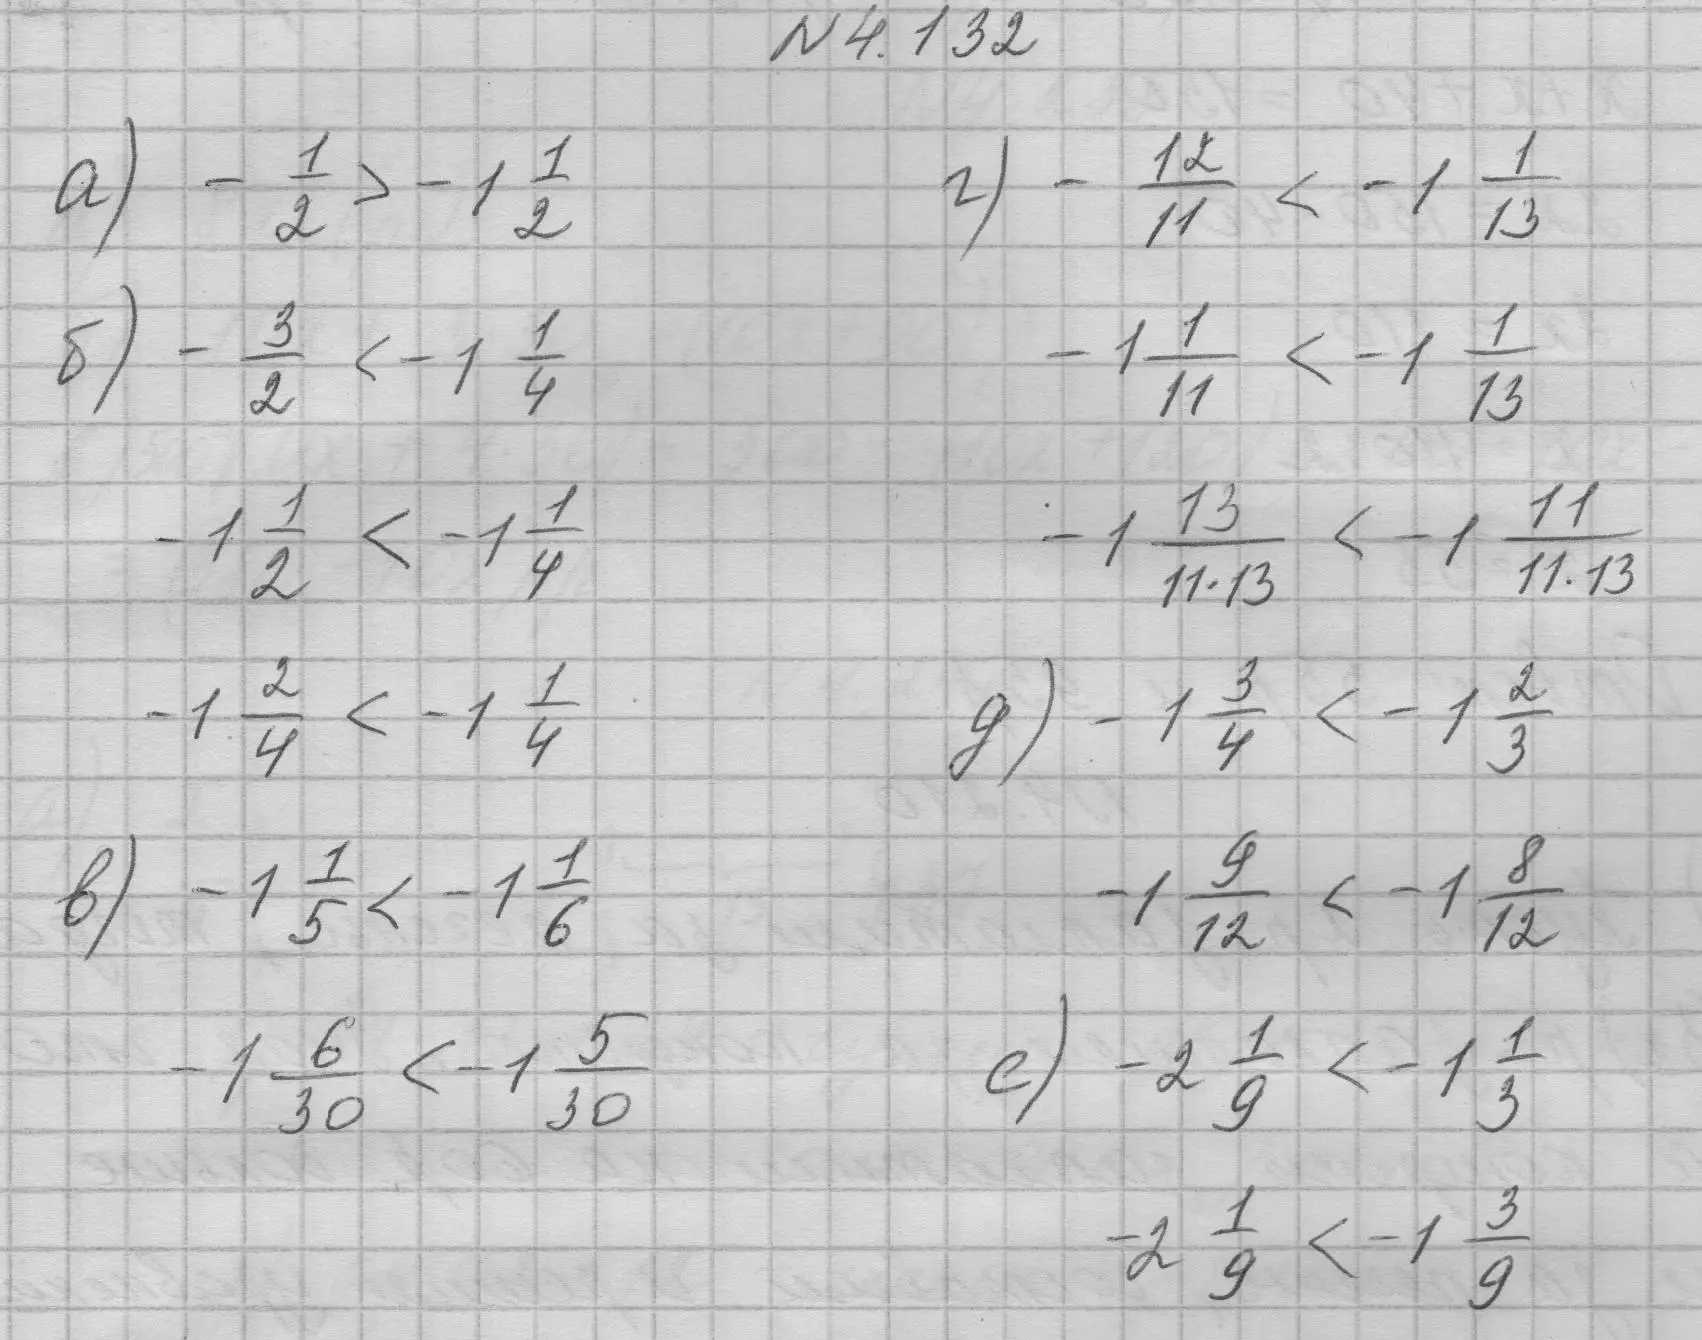 N4.132
а) - 1/2 > -1 1/2
б) - 3/2 < -1 1/4
-1 1/2 < -1 1/4
-1 2/4 < -1 1/4
в) -1 1/5 < -1 1/6
-1 6/30 < -1 5/30
г) - 12/11 < -1 1/13
-1 1/11 < -1 1/13
-1 13/11·13 < -1 11/11·13
д) -1 3/4 < -1 2/3
-1 9/12 < -1 8/12
е) -2 1/9 < -1 1/3
-2 1/9 < -1 3/9